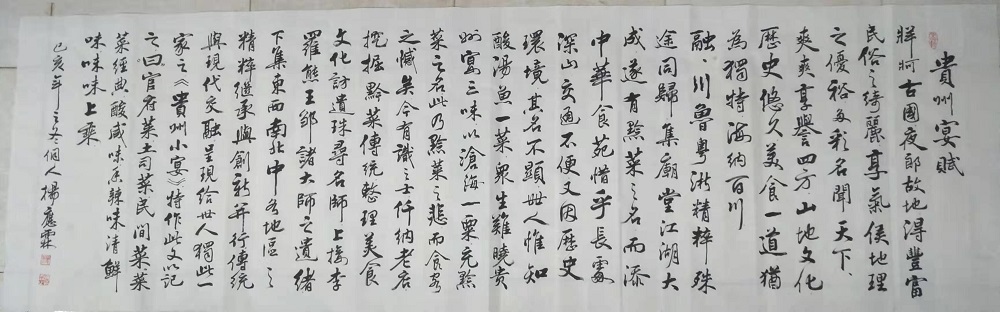 貴州宴賦
牂牁古國夜郎故地得豐富
民俗之綺麗享氣侯地理
之優裕多彩名聞天下
爽爽享譽四方山地文化
歷史悠久美食一道猶
為獨特海納百川
融川魯粵淅精粹殊
途同歸集廟堂江湖大
成遂有黔菜之名而添
中華食苑惜乎長處
深山交通不便又因歷史
環境其名不顯世人惟知
酸湯魚一菜衆生難曉貴
州宴三味以滄海一粟充黔
菜之名此乃黔菜之悲而食客
之憾矣今有識之士仟納老店
挖掘黔菜傳統整理美食
文化訪遺珠尋名師上接李
羅熊王鄒諸大師之遺緒
下集東西南北中各地區之
精粹繼承與創新并行傳統
與現代交融呈現給世人獨此一
家之《貴州小宴》特作此文以記
之曰官府菜土司菜民間菜菜
菜經典酸咸味原辣味清鮮
味味味上乘
己亥年之冬個人楊應霖